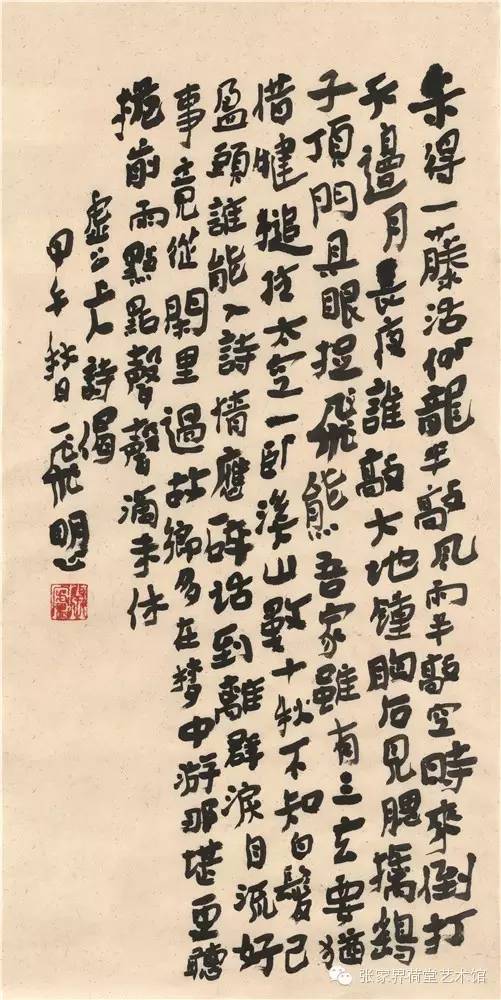 得一藤活似龍半敲風雨半敲空時來倒打
天邊月長夜誰敲大地鐘后見腮擒鷄
子頂門具眼捉飛熊吾家雖有三玄要猶
惜犍搥太空一卧溪山數十秋不知白髮已
盈頭誰能入詩情應碎話到離群淚自流好
事竟從閑里過故鄉多在夢中游那堪更聽
前雨點點聲聲滴未休
虛公上人詩偈
甲午秋日一飛明
张家界荷堂艺术馆